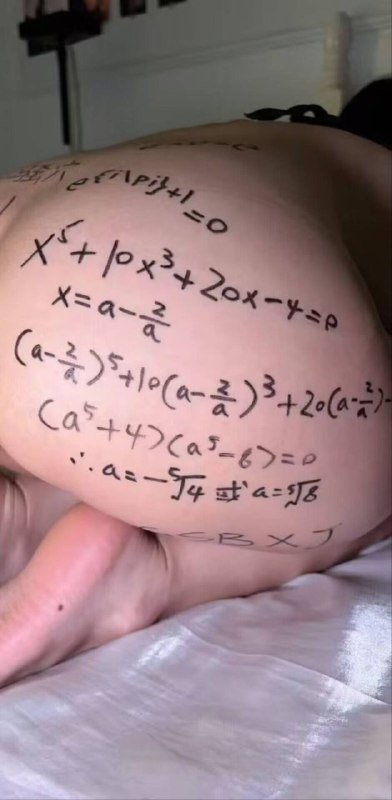 e^{i\pi}+1
=0
x⁵+10x³+20x-4=0
x=a-2/a
(a-2/a)⁵+10(a-2/a)³+20(a-2/a)-
(a⁵+4)(a⁵-8)=0
∴a=-⁵√4 或 a=⁵√8
BXJ